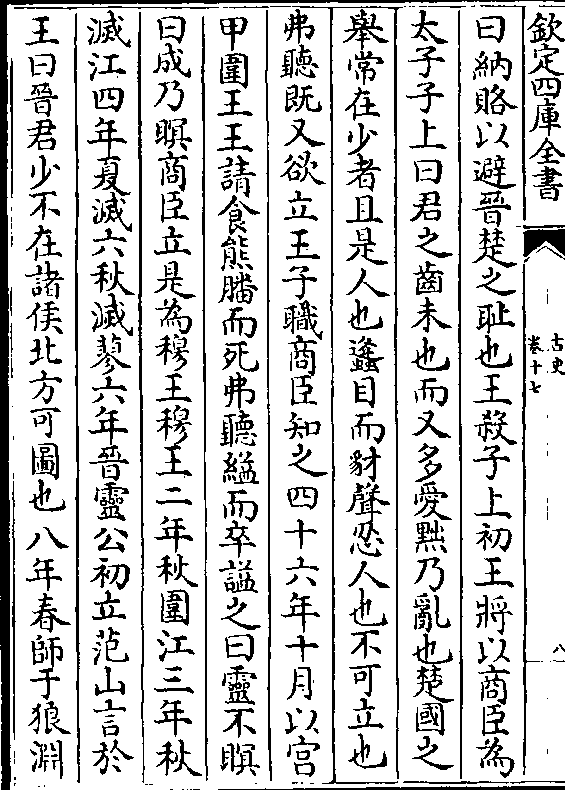 欽定四庫全書
古史
卷十七
八
曰納賂以避晉楚之耻也王殺子上初王將以商臣為
太子子上曰君之齒未也而又多愛黜乃亂也楚國之
舉常在少者且是人也蠭目而豺聲忍人也不可立也
弗聽既又欲立王子職商臣知之四十六年十月以宫
甲圍王王請食熊膰而死弗聽縊而卒諡之曰靈不瞑
曰成乃瞑商臣立是為穆王穆王二年秋圍江三年秋
滅江四年夏滅六秋滅蓼六年晉靈公初立范山言於
王曰晉君少不在諸侯北方可圖也八年春師于狼淵